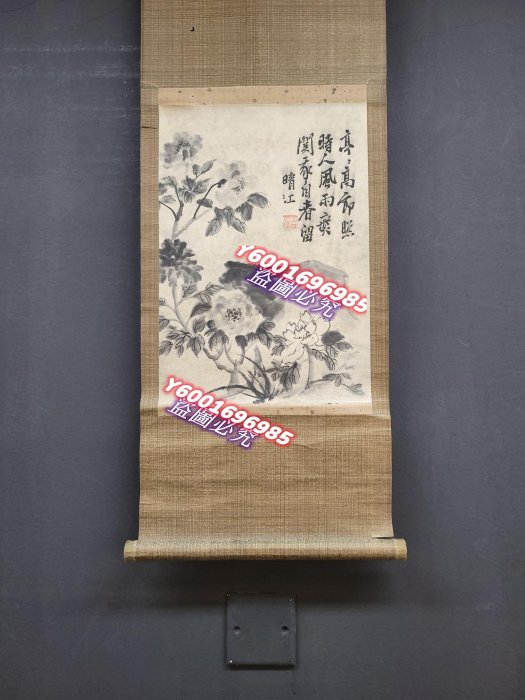 亭〻高節照
時人風雨
自春留
晴江
Y6001696985
盜圖必究
Y6001696985
盜圖必究